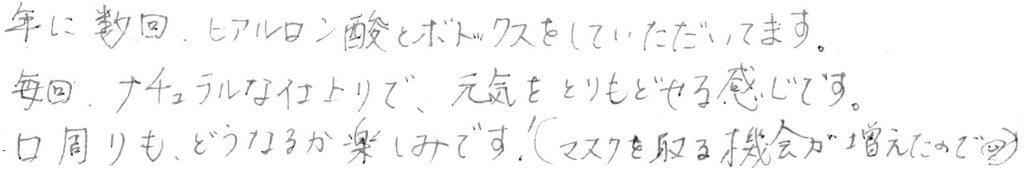 年に数回、ヒアルロン酸とボトックスをしていただいてます。
毎回、ナチュラルな仕上りで、元気をとりもどせる感じです。
口周りも、どうなるか楽しみです!(マスクを取る機会が増えたので)